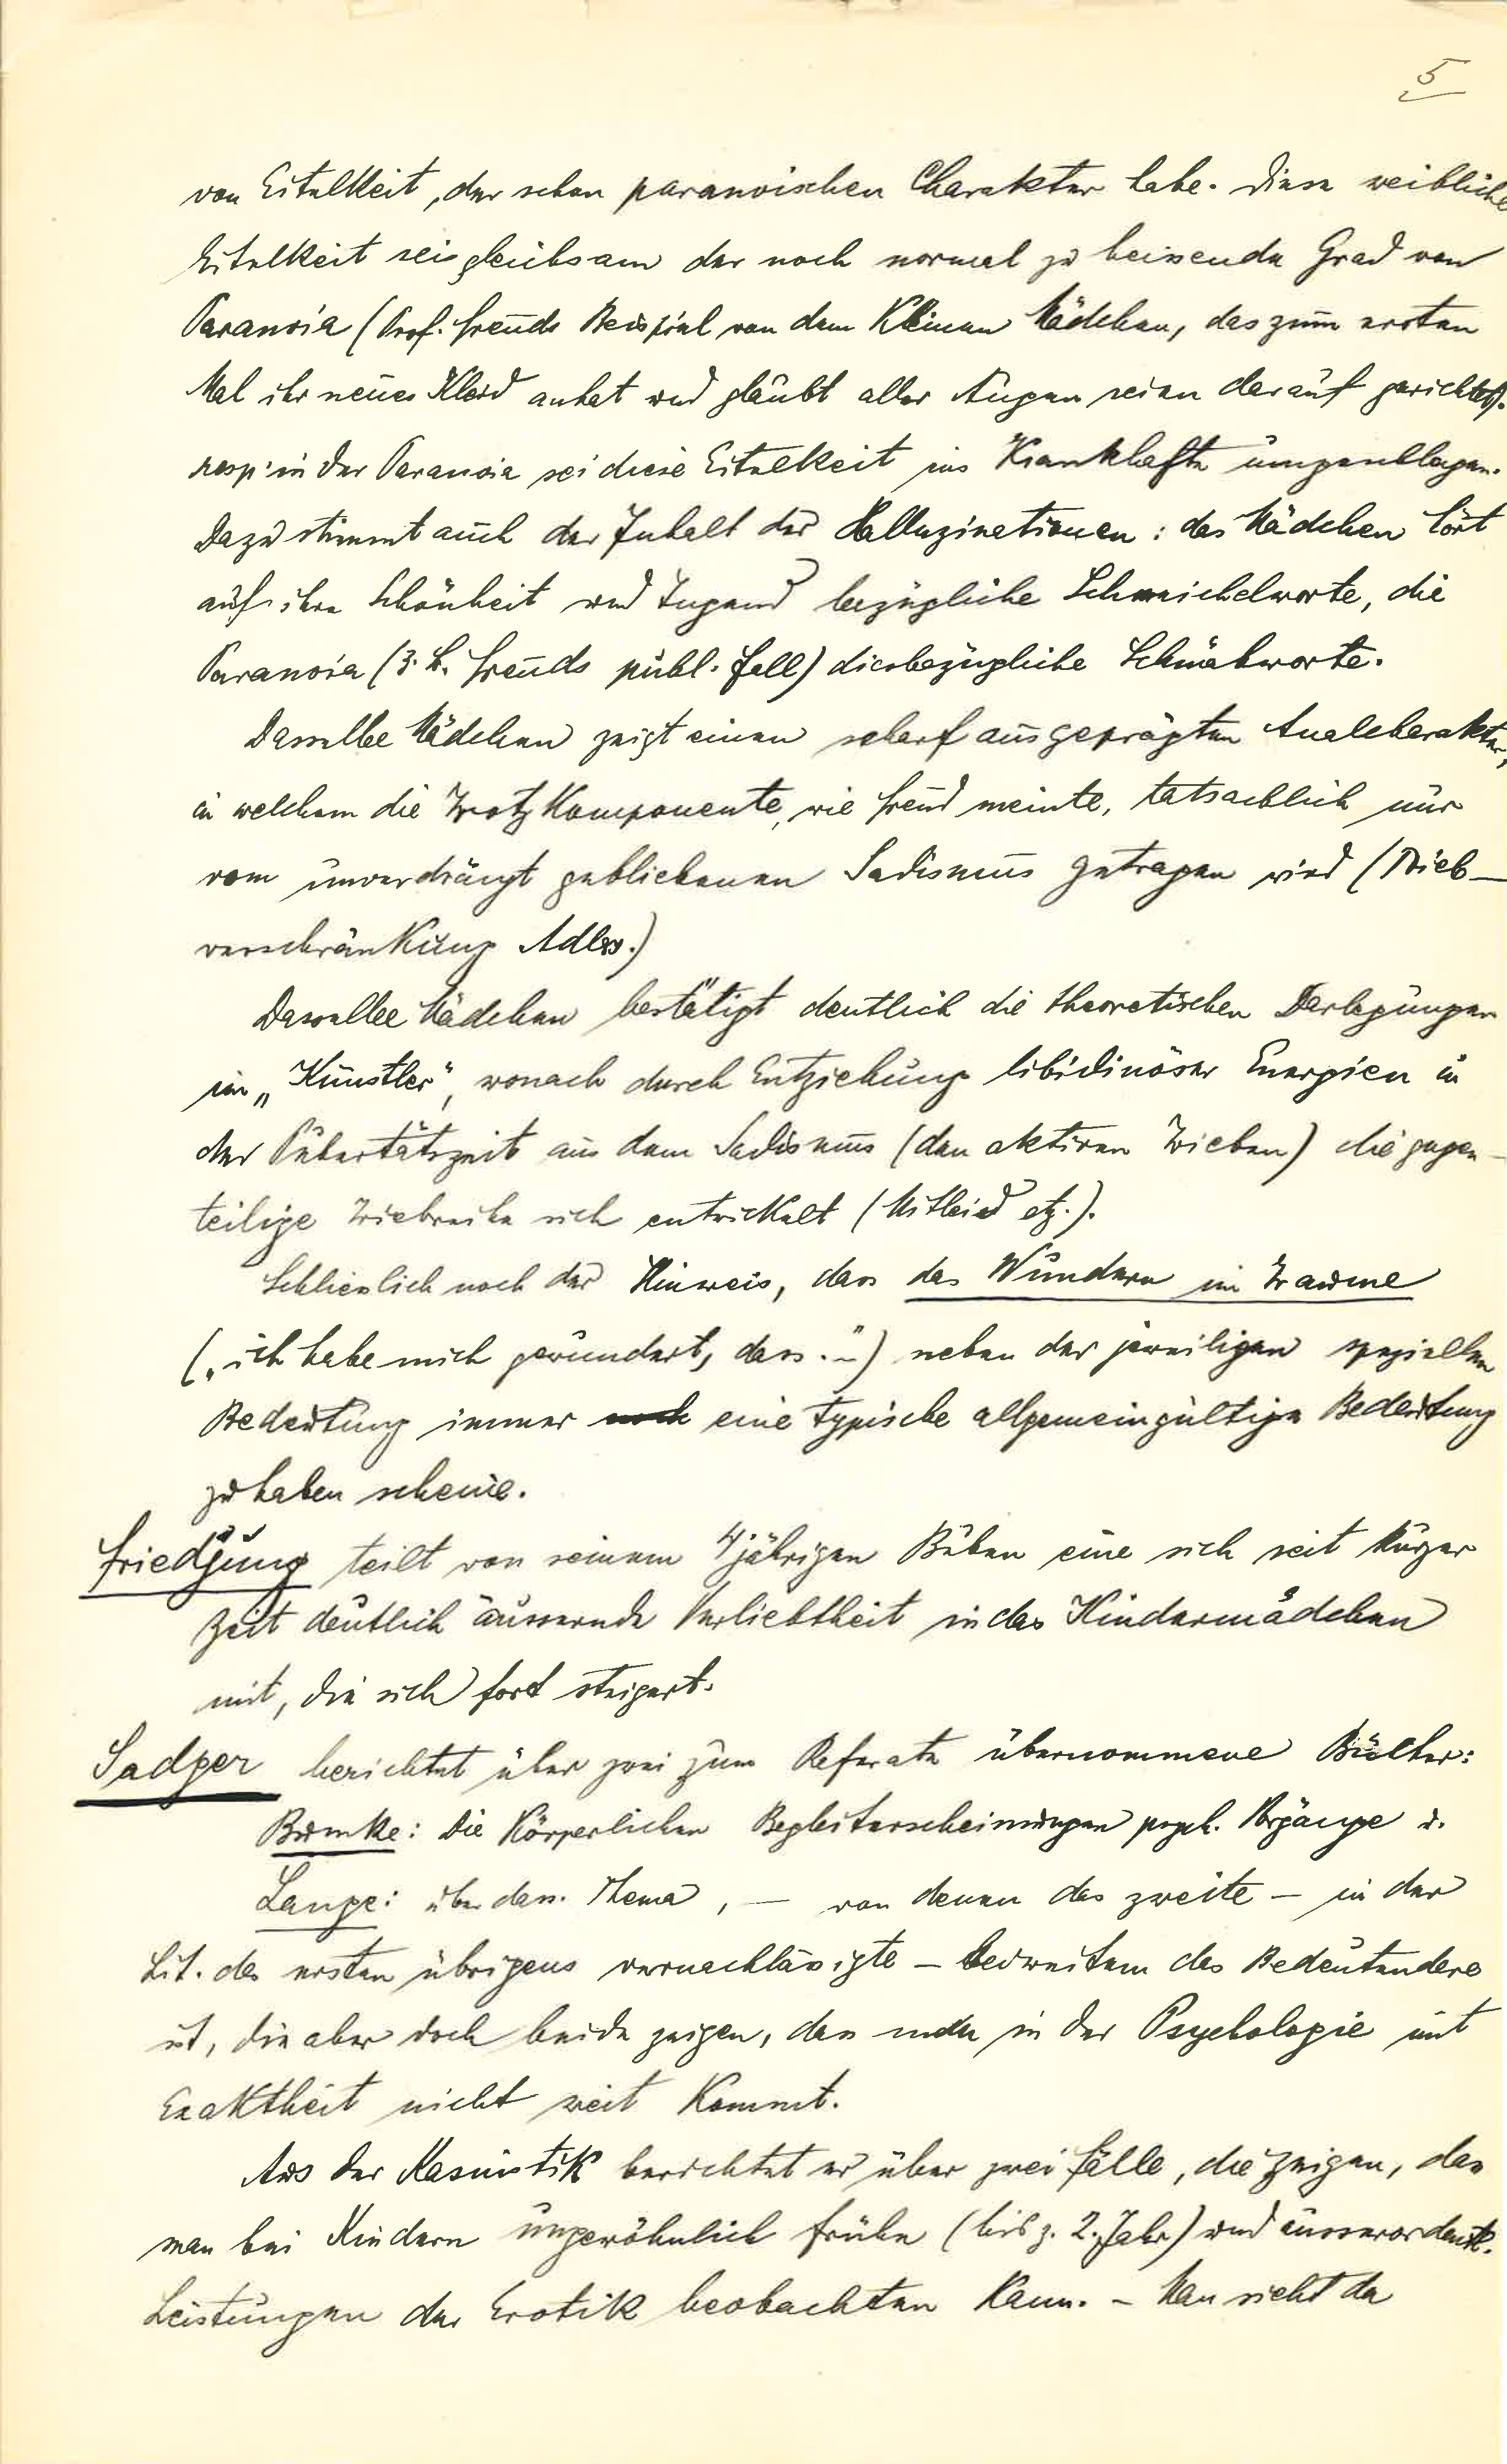 5
von Eitelkeit, der schon paranoischen Charakter habe. Diese weibliche
Eitelkeit sei gleichsam der noch normal zu heissende Grad von
Paranoia (Prof. Freuds Beispiel von dem Kleinen Mädchen, das zum ersten
Mal ihr neues Kleid anhat und glaubt aller Augen seien darauf gerichtet).
resp. in der Paranoia sei diese Eitelkeit ins Krankhafte umgeschlagen.
Dazu stimmt auch der Inhalt der Halluzinationen: das Mädchen hört
auf ihre Schönheit und Tugend bezügliche Schmeichelworte, die
Paranoia (z. B. Freuds publ. Fall) diesbezügliche Schmähworte.
Dasselbe Mädchen zeigt einen scharf ausgeprägten Analcharakter,
in welchem die Trotzkomponente, wie Freud meinte, tatsächlich nur
vom unverdrängt gebliebenen Sadismus getragen wird (Trieb-
verschränkung Adlers.)
Dasselbe Mädchen bestätigt deutlich die theoretischen Darlegungen
im „Künstler", wonach durch Entziehung libidinöser Energien in
der Pubertätszeit aus dem Sadismus (den aktiven Trieben) die gegen-
teilige Triebreihe sich entwickelt (Mitleid etz.).
Schliesslich noch der Hinweis, dass das Wundern im Traume
(„ich habe mich gewundert, dass..") neben der jeweiligen speziellen
Bedeutung immer noch eine typische allgemeingültige Bedeutung
zu haben scheine.
Friedjung teilt von seinem 4jährigen Buben eine sich seit kurzer
Zeit deutlich äussernde Verliebtheit in das Kindermädchen
mit, die sich fort steigert.
Sadger berichtet über zwei zum Referate übernommene Bücher:
Bumke: Die Körperlichen Begleiterscheinungen psych. Vorgänge u.
Lange: über dass. Thema, — von denen das zweite — in der
Lit. des ersten übrigens vernachlässigte — beiweitem das Bedeutendere
ist, die aber doch beide zeigen, dass man in der Psychologie mit
Exaktheit nicht weit Kommt.
Aus der Kasuistik berichtet er über zwei Fälle, die zeigen, dass
man bei Kindern ungewöhnlich frühe (bis z. 2. Jahr) und ausserordentl.
Leistungen der Erotik beobachten Kann. – Man sieht da